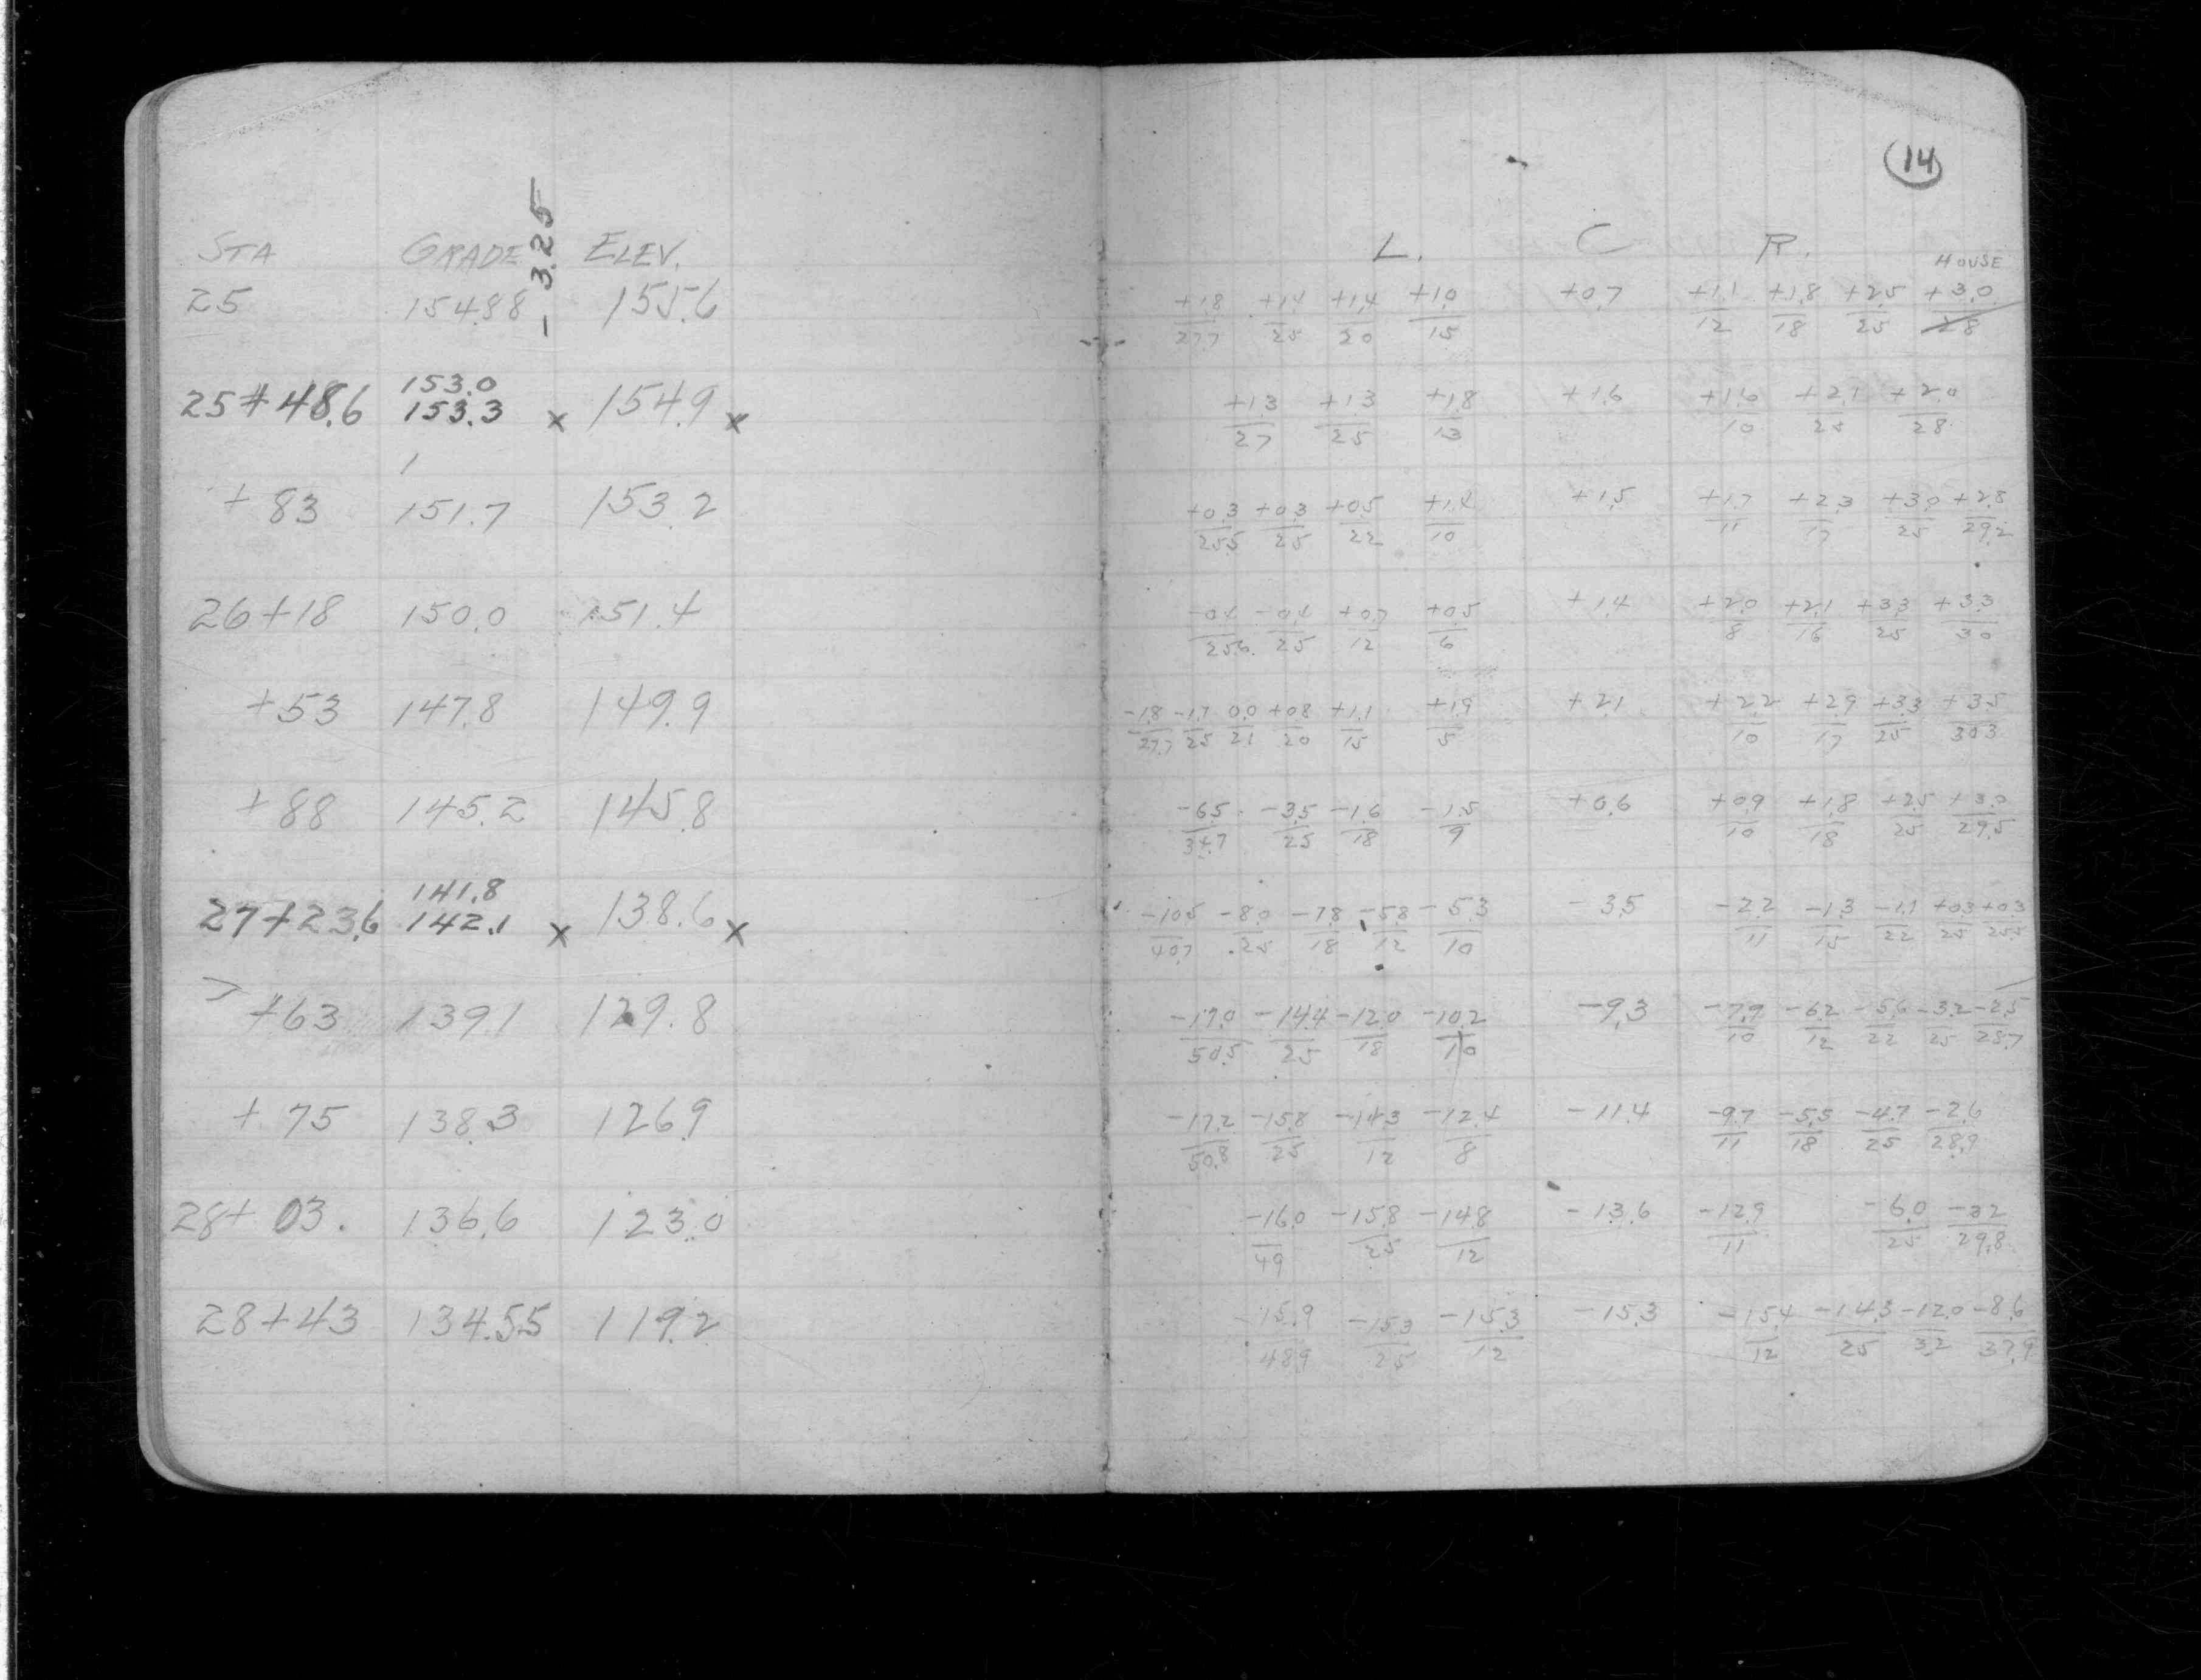 14
- 3.25
STA GRADE ELEV. L. C R. HOUSE
25 154.88 155.6 +1.8/27.7 +1.4/25 +1.4/20 +1.0/15 +0.7 +1.1/12 +1.8/18 +2.5/25 +3.0/28
153.0
25+48.6 153.3 x 154.9 x +1.3/27 +1.3/25 +1.8/13 +1.6 +1.6/10 +2.1/25 +2.0/28
+83 151.7 153.2 +0.3/25.5 +0.3/25 +0.5/22 +1.4/10 +1.5 +1.7/11 +2.3/17 +3.0/25 +2.8/29.2
26+18 150.0 151.4 -0.4/25.6 -0.4/25 +0.7/12 +0.5/6 +1.4 +2.0/8 +2.1/16 +3.3/25 +3.3/30
+53 147.8 149.9 -1.8/27.7 -1.7/25 0.0/21 +0.8/20 +1.1/15 +1.9/5 +2.1 +2.2/10 +2.9/17 +3.3/25 +3.5/30.3
+88 145.2 145.8 -6.5/34.7 -3.5/25 -1.6/18 -1.5/9 +0.6 +0.9/10 +1.8/18 +2.5/25 +3.0/29.5
141.8
27+23.6 142.1 x 138.6 x -10.5/40.7 -8.0/25 -7.8/18 -5.8/12 -5.3/10 -3.5 -2.2/11 -1.3/15 -1.1/22 +0.3/25 +0.3/25.5
+63 139.1 129.8 -17.0/50.5 -14.4/25 -12.0/18 -10.2/10 -9.3 -7.9/10 -6.2/12 -5.6/22 -3.2/25 -2.5/28.7
+75 138.3 126.9 -17.2/50.8 -15.8/25 -14.3/12 -12.4/8 -11.4 -9.7/11 -5.5/18 -4.7/25 -2.6/28.9
28+03. 136.6 123.0 -16.0/49 -15.8/25 -14.8/12 -13.6 -12.9/11 -6.0/25 -3.2/29.8
28+43 134.55 119.2 -15.9/48.9 -15.3/25 -15.3/12 -15.3 -15.4/12 -14.3/25 -12.0/32 -8.6/37.9